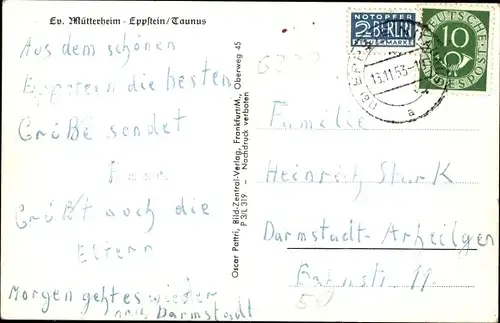 Ev. Mütterheim - Eppstein/Taunus
Aus dem schönen
Eppstein die besten
Grüße sendet
Grüßt auch die
Eltern
Morgen geht es wieder
nach Darmstadt
Oscar Pattri, Bild-Zentral-Verlag, Frankfurt/M., Oberweg 45
P 3/L 319 - Nachdruck verboten
NOTOPFER
2 BERLIN
STEUERMARKE
DEUTSCHE
10
BUNDESPOST
13.11.53
a
Familie
Heinrich Stark
Darmstadt-Arheilgen
Bahnstr. 11
50